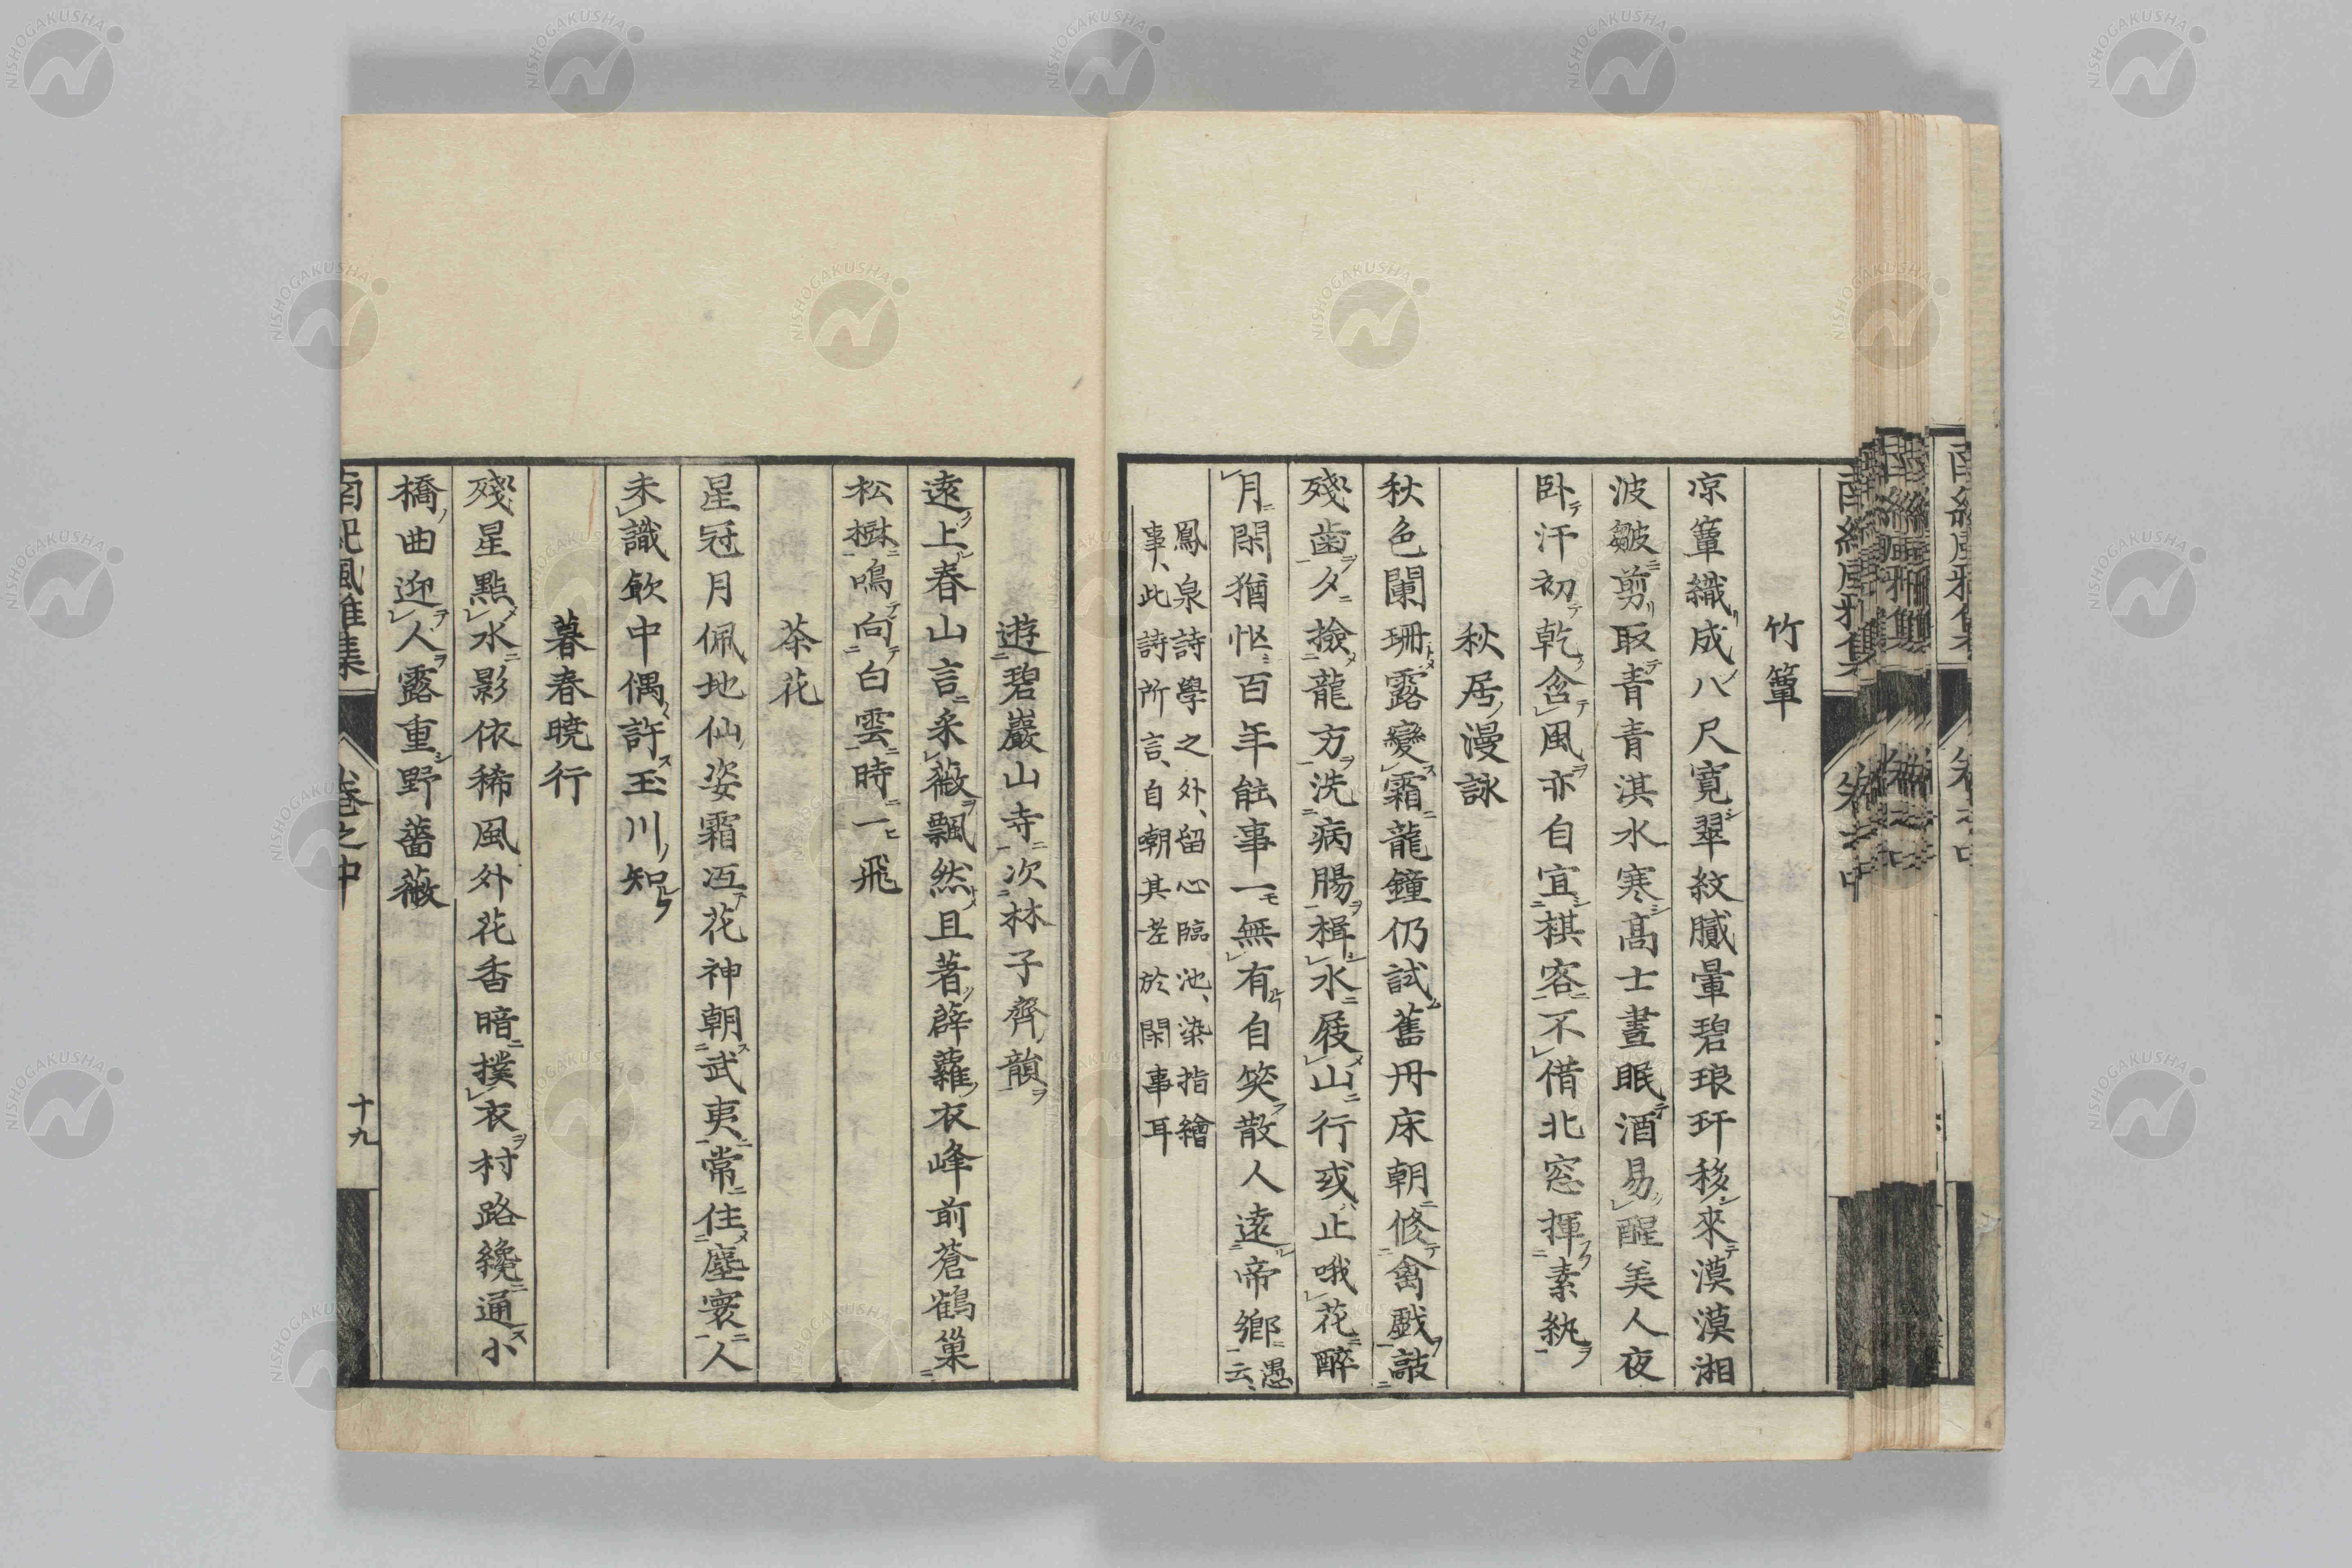 竹簟
凉簟織成八尺寛翠紋膩暈碧琅玕移來漠漠湘
波皺剪取青青淇水寒高士晝眠酒易醒美人夜
卧汗初乾含風亦自宜棋客不借北窓揮素紈
秋居漫詠
秋色闌珊露變霜龍鐘仍試舊丹床朝修禽戲敲
殘歯夕撿龍方洗病腸楫水屐山行或止哦花醉
月閑猶忙百年能事一無有自笑散人遠帝郷愚云、
鳳泉詩學之外、留心臨池、染指繪
事、此詩所言、自嘲其老於閑事耳
遊碧巖山寺次林子齊韻
遠上春山言采薇飄然且著薜蘿衣峰前蒼鶴巢
松樹鳴向白雲時一飛
茶花
星冠月佩地仙姿霜冱花神朝武夷常住塵寰人
未識飲中偶許玉川知
暮春曉行
殘星點水影依稀風外花香暗撲衣村路纔通小
橋曲迎人露重野薔薇
南紀風雅集 卷之中 十九
NISHOGAKUSHA